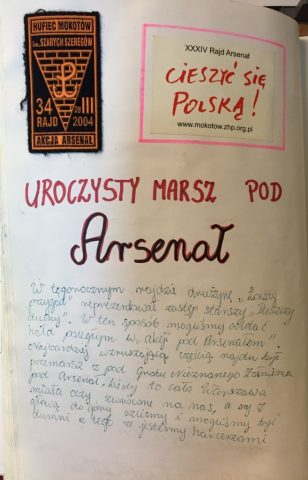 HUFIEC MOKOTÓW
im. SZARYCH SZEREGÓW
34 28 III
RAJD 2004
AKCJA ARSENAŁ
XXXIV Rajd Arsenał
CIESZYĆ SIĘ
POLSKĄ!
www.mokotow.zhp.org.pl
UROCZYSTY MARSZ POD
Arsenał
W tegorocznym rajdzie drużynę „Łowcy
przygód” reprezentował zastęp starszy
duchy”. W ten sposób mogliśmy oddać
hołd poległym w „Akcji pod Arsenałem”.
Najbardziej wzruszającą częścią rajdu był
przemarsz z pod Grobu Nieznanego Żołnierza
pod Arsenał, kiedy to cała Warszawa
miała oczy zwrócone na nas, a my z
głową do góry szliśmy i mogliśmy być
dumni z tego że jesteśmy harcerzami